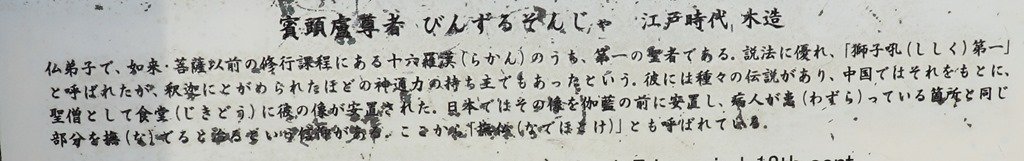 賓頭盧尊者 びんずるそんじゃ 江戸時代 木造
仏弟子で、如来・菩薩以前の修行課程にある十六羅漢(らかん)のうち、第一の聖者である。説法に優れ、「獅子吼(ししく)第一」
と呼ばれたが、釈迦にとがめられたほどの神通力の持ち主でもあったという。彼には種々の伝説があり、中国ではそれをもとに、
聖僧として食堂(じきどう)に彼の像が安置された。日本ではその像を伽藍の前に安置し、病人が患(わずら)っている箇所と同じ
部分を撫(な)でると治るという信仰がある。ここから「撫仏(なでほとけ)」とも呼ばれている。